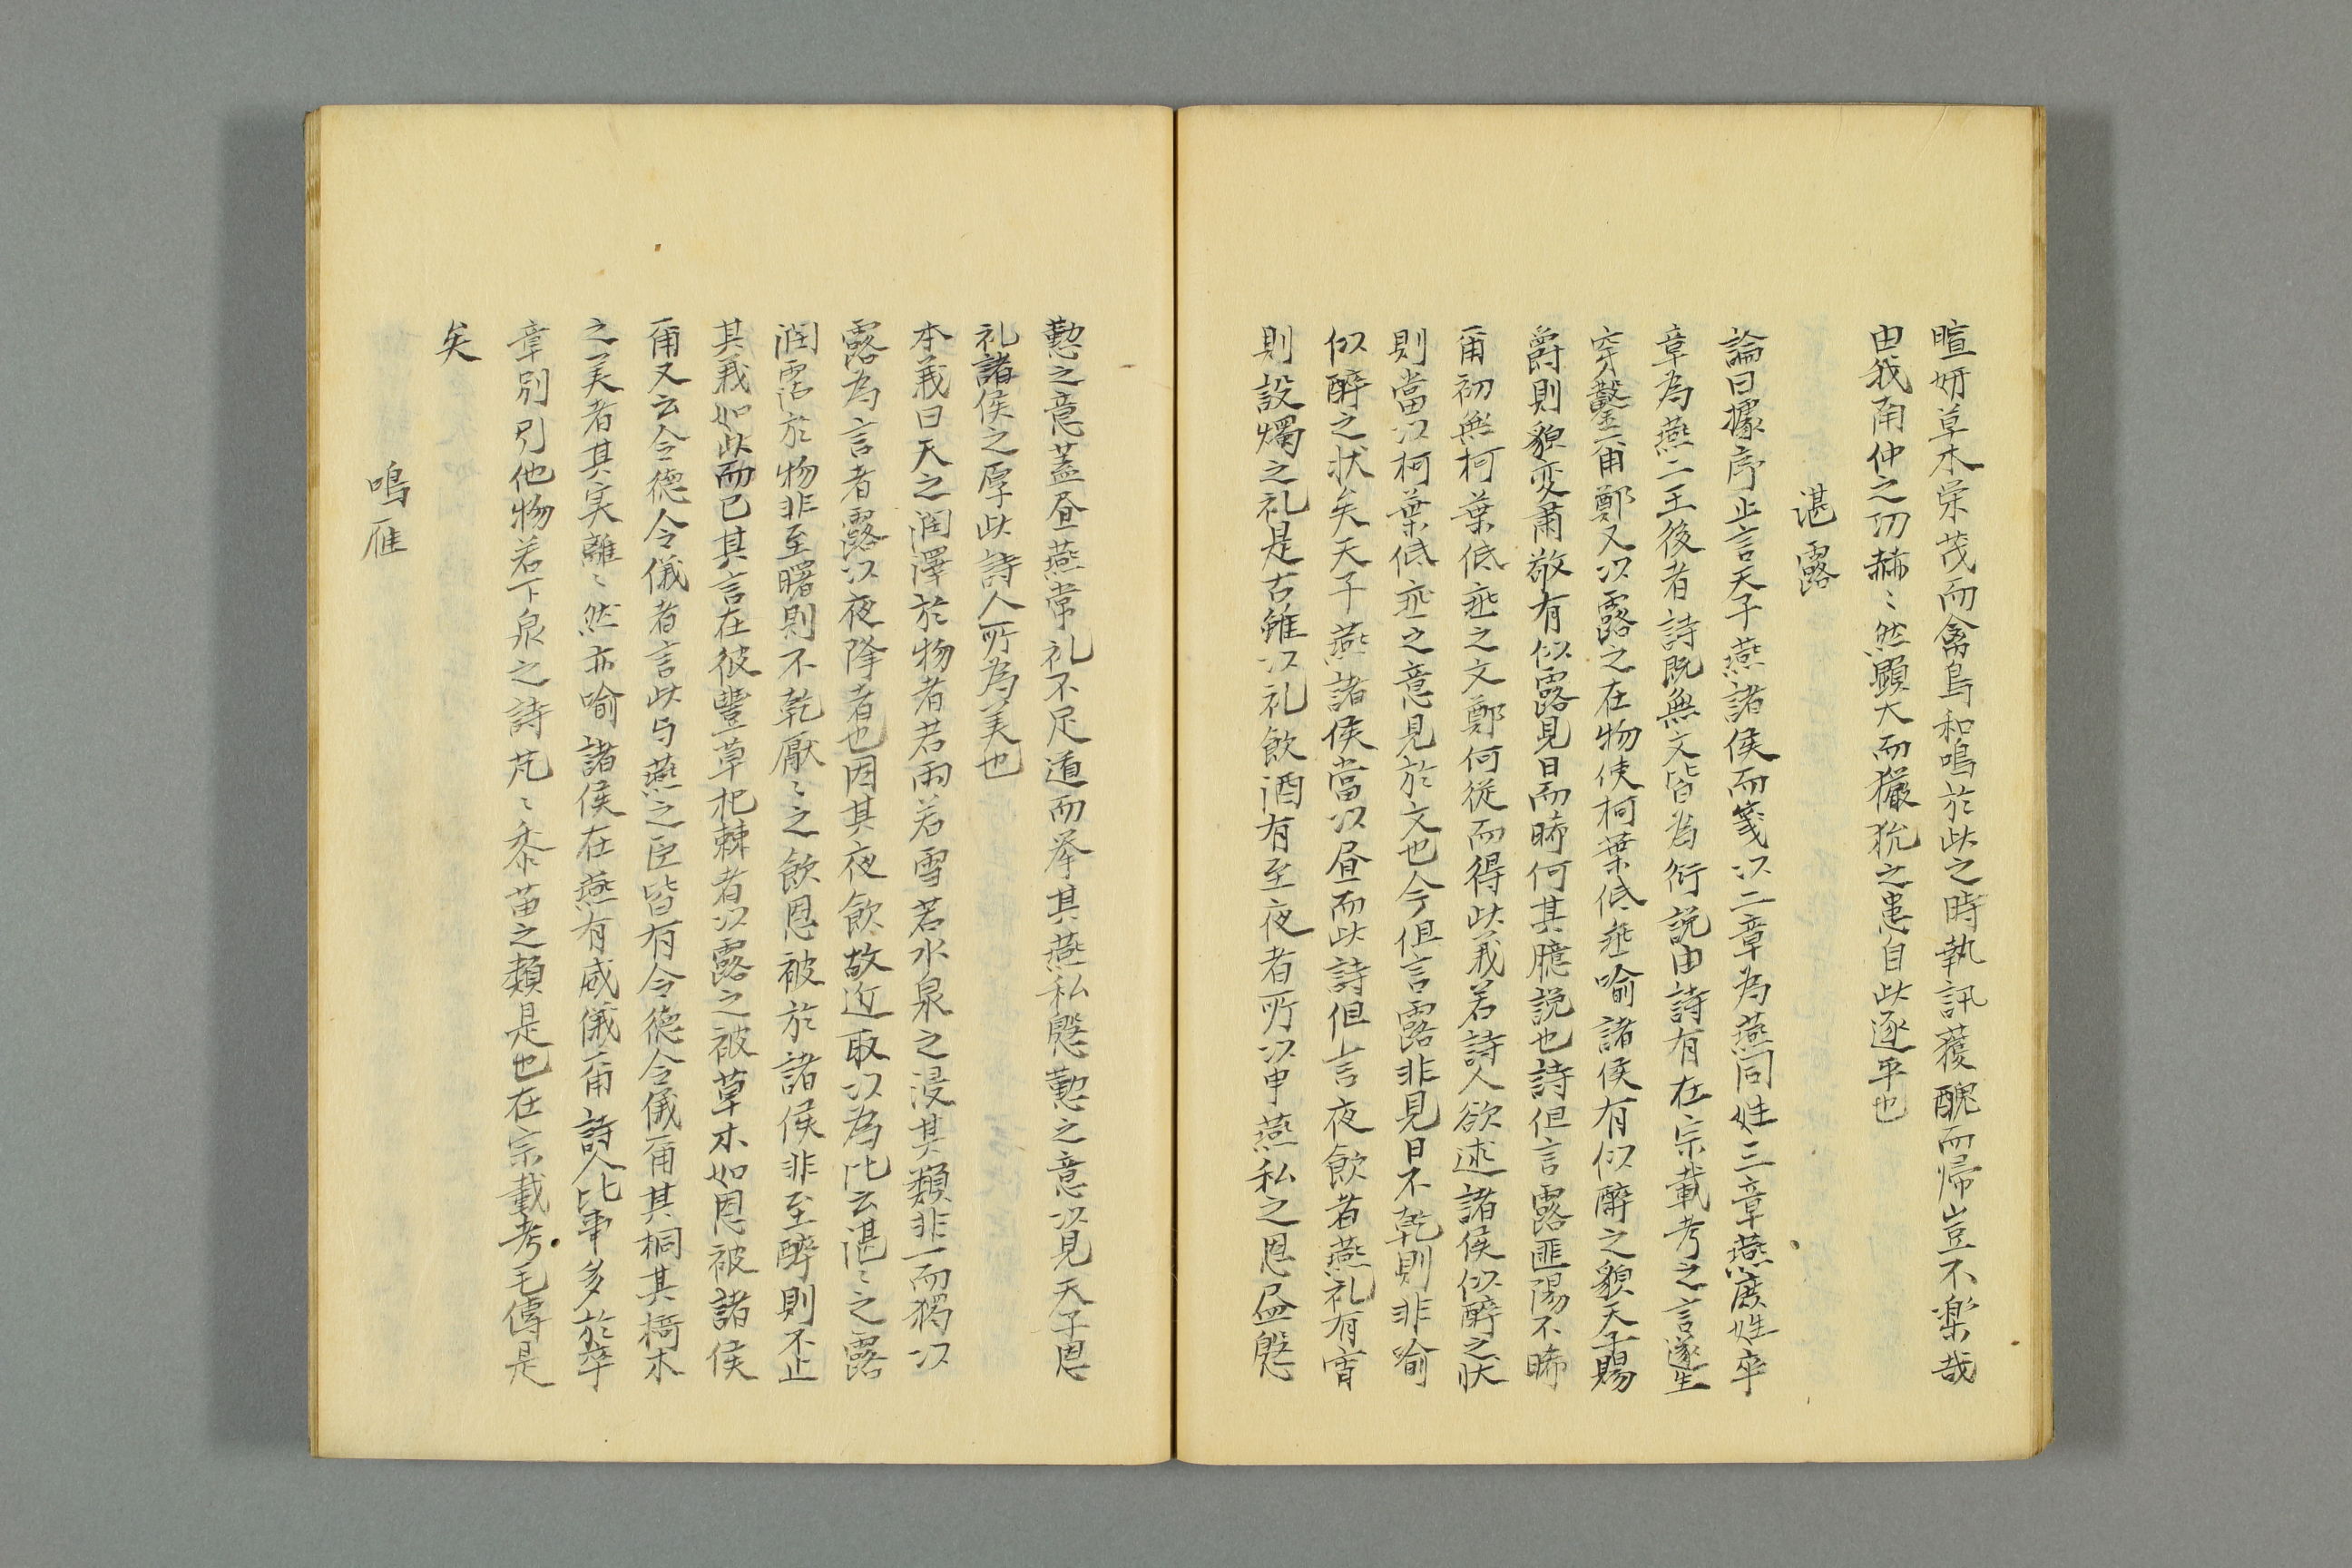 暄妍草木栄茂而禽鳥和鳴於此之時執訊獲醜而帰豈不楽哉
由我南仲之功赫〻然顕大而玁狁之患自此遂平也
湛露
論曰據序止言天子燕諸侯而箋以二章為燕同姓三章燕庶姓卒
章為燕二王後者詩既無文皆為衍説由詩有在宗載考之言遂生
穿鑿爾鄭又以露之在物使柯葉低垂喻諸侯有似醉之貌天子賜
爵則貌変肅敬有似露見日而晞何其臆説也詩但言露匪陽不晞
爾初無柯葉低垂之文鄭何従而得此義若詩人欲述諸侯似醉之状
則當以柯葉低垂之意見於文也今但言露非見日不乾則非喻
似醉之状矣天子燕諸侯當以昼而此詩但言夜飲者燕礼有宵
則設燭之礼是古雖以礼飲酒有至夜者所以申燕私之恩盡慇
懃之意蓋昼燕常礼不足道而挙其燕私慇懃之意以見天子恩
礼諸侯之厚此詩人所為美也
本義曰天之潤澤於物者若雨若雪若水泉之浸其類非一而獨以
露為言者露以夜降者也因其夜飲故近取以為比云湛〻之露
潤霑於物非至曙則不乾厭〻之飲恩被於諸侯非至醉則不止
其義如此而已其言在彼豊草杞棘者以露之被草木如恩被諸侯
爾又云令德令儀者言此与燕之臣皆有令德令儀爾其桐其椅木
之美者其実離〻然亦喻諸侯在燕有威儀爾詩人比事多於卒
章別引他物若下泉之詩芃〻黍苗之類是也在宗載考毛傳是
矣
鳴雁